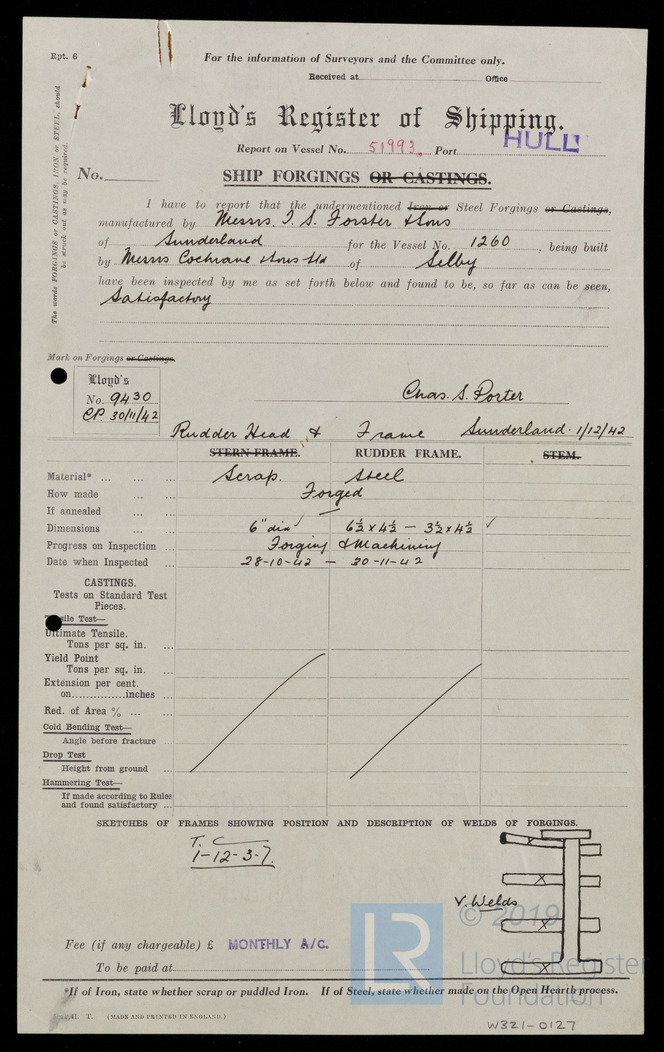 Rpt. 6
For the information of Surveyors and the Committee only.
Received at Office
Lloyd's Register of Shipping.
Report on Vessel No. 51993 Port HULL
No.
SHIP FORGINGS OR CASTINGS.
The words FORGINGS or CASTINGS, IRON or STEEL, should
be struck out as may be required.
I have to report that the undermentioned Iron or Steel Forgings or Castings,
manufactured by Messrs. T. S. Forster & Sons
of Sunderland for the Vessel No. 1260, being built
by Messrs Cochrane & Sons Ltd of Selby
have been inspected by me as set forth below and found to be, so far as can be seen,
Satisfactory
Mark on Forgings or Castings.
Lloyd's
No. 9430
CP. 30/11/42
Chas. S. Porter
Rudder Head & Frame Sunderland. 1/12/42
STERN FRAME. RUDDER FRAME. STEM.
Material* ... ... Scrap. Steel
How made ... Forged
If annealed ... —
Dimensions ... 6" dia ✓ 6½ x 4½ — 3½ x 4½ ✓
Progress on Inspection ... Forging & Machining
Date when Inspected ... 28-10-42 — 30-11-42
CASTINGS.
Tests on Standard Test
Pieces.
Tensile Test—
Ultimate Tensile.
Tons per sq. in. ...
Yield Point
Tons per sq. in. ...
Extension per cent.
on...............inches ...
Red. of Area % ... ...
Cold Bending Test—
Angle before fracture ...
Drop Test
Height from ground ...
Hammering Test—
If made according to Rules
and found satisfactory ...
SKETCHES OF FRAMES SHOWING POSITION AND DESCRIPTION OF WELDS OF FORGINGS.
1-12-3-7.
V. Welds
Fee (if any chargeable) £ MONTHLY A/C.
To be paid at
© 2019
LR
Lloyd's Register
Foundation
*If of Iron, state whether scrap or puddled Iron. If of Steel, state whether made on the Open Hearth process.
T. (MADE AND PRINTED IN ENGLAND.)
W321-0127